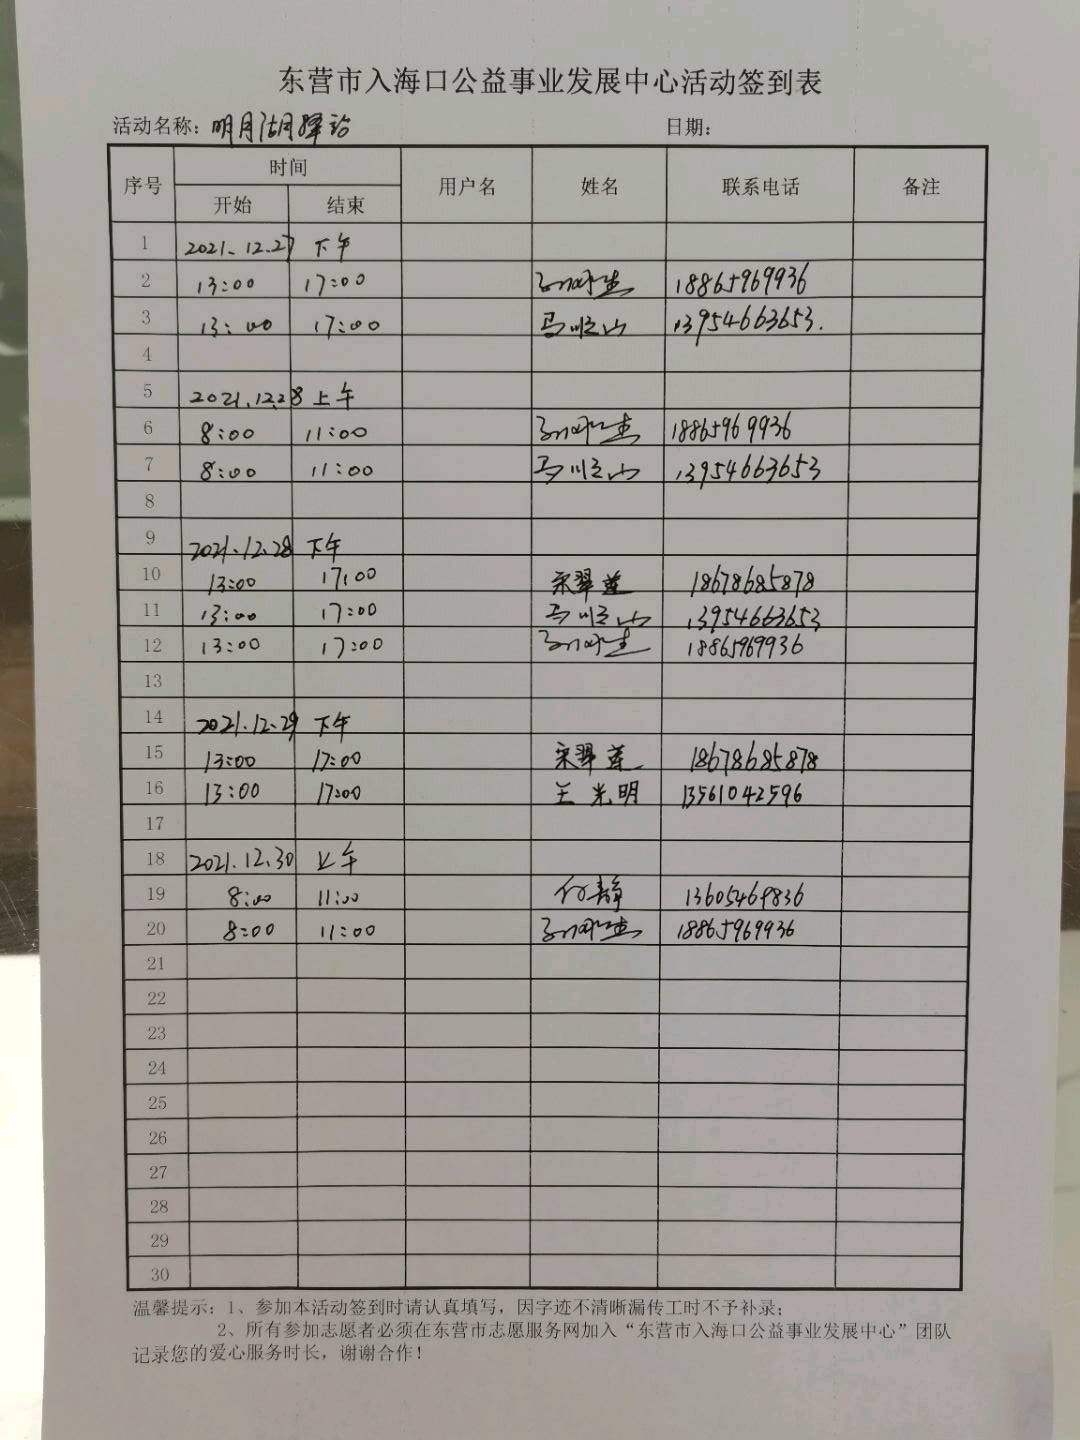 东营市入海口公益事业发展中心活动签到表
活动名称：明月湖驿站 日期：
序号 时间 用户名 姓名 联系电话 备注
开始 结束
1 2021.12.27 下午
2 13:00 17:00 18865969936
3 13:00 17:00 马顺山 13954663653
4
5 2021.12.28 上午
6 8:00 11:00 18865969936
7 8:00 11:00 马顺山 13954663653
8
9 2021.12.28 下午
10 13:00 17:00 宋翠莲 18678685878
11 13:00 17:00 马顺山 13954663653
12 13:00 17:00 18865969936
13
14 2021.12.29 下午
15 13:00 17:00 宋翠莲 18678685878
16 13:00 17:00 王光明 13561042596
17
18 2021.12.30 上午
19 8:00 11:00 何静 13605469836
20 8:00 11:00 18865969936
21
22
23
24
25
26
27
28
29
30
温馨提示：1、参加本活动签到时请认真填写，因字迹不清晰漏传工时不予补录；
2、所有参加志愿者必须在东营市志愿服务网加入“东营市入海口公益事业发展中心”团队
记录您的爱心服务时长，谢谢合作！